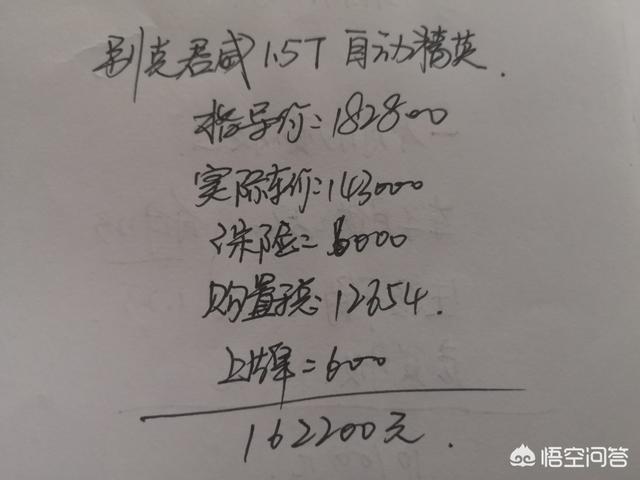 别克君威1.5T自动精英.
指导价=182800
实际车价=143000
保险=6000
购置税=12654.
上牌=600
162200元.
悟空问答